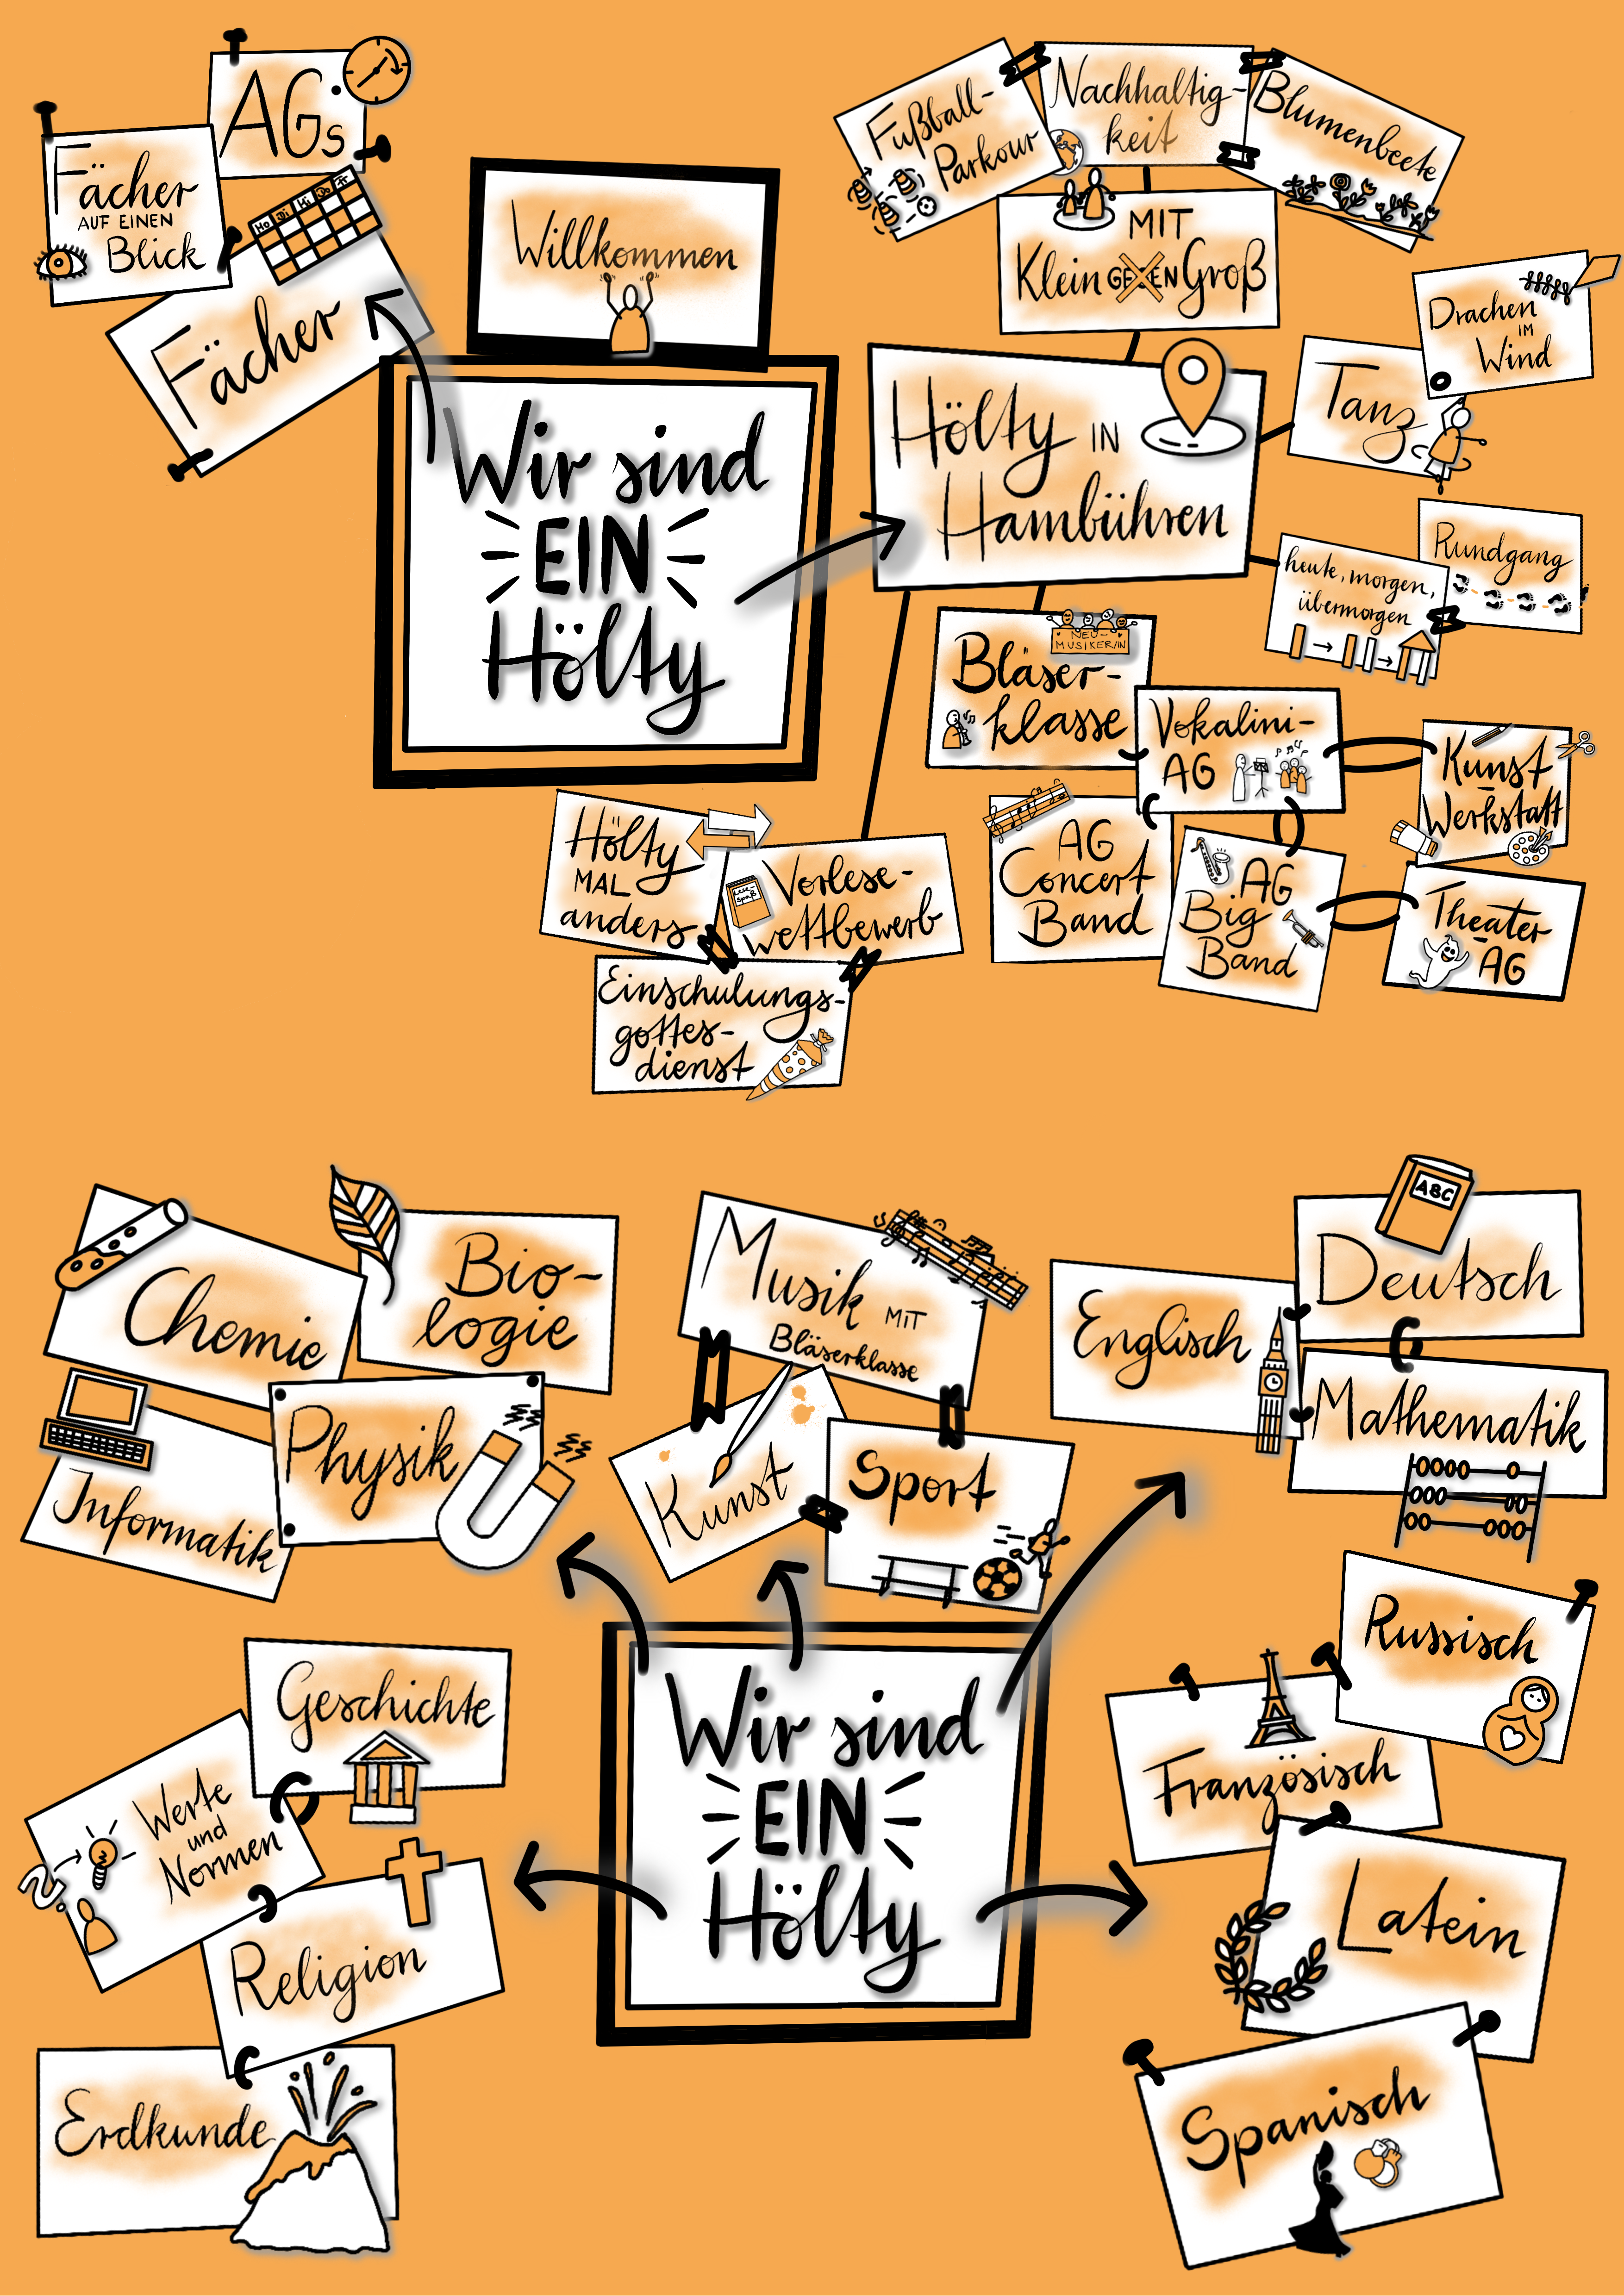 AGs
Fächer
AUF EINEN
Blick
Mo Di Mi Do Fr
Fächer
Willkommen
Wir sind
EIN
Hölty
Fußball-
Parkour
Nachhaltig-
keit
Blumenbeete
MIT
Klein GEGEN Groß
Hölty IN
Hambühren
Drachen
IM
Wind
Tanz
Rundgang
heute, morgen,
übermorgen
NEU-
MUSIKER/IN
Bläser-
klasse
Vokalini-
AG
Kunst
Werkstatt
AG
Concert
Band
AG
Big
Band
Theater
AG
Hölty
MAL
anders
Lese-
spaß
Vorlese-
wettbewerb
Einschulungs-
gottes-
dienst
Chemie
Bio-
logie
Physik
Informatik
Musik MIT
Bläserklasse
Kunst
Sport
ABC
Deutsch
Englisch
Mathematik
Russisch
Französisch
Latein
Spanisch
Geschichte
Werte
und
Normen
Religion
Erdkunde
Wir sind
EIN
Hölty